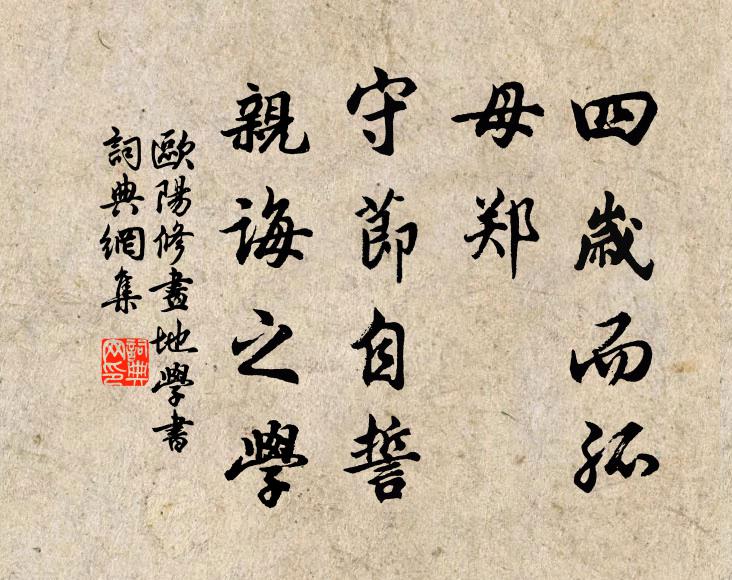 四歲而孤
母郑
守節自誓
親誨之學
歐陽修畫地學書
詞典網集
詞典网印